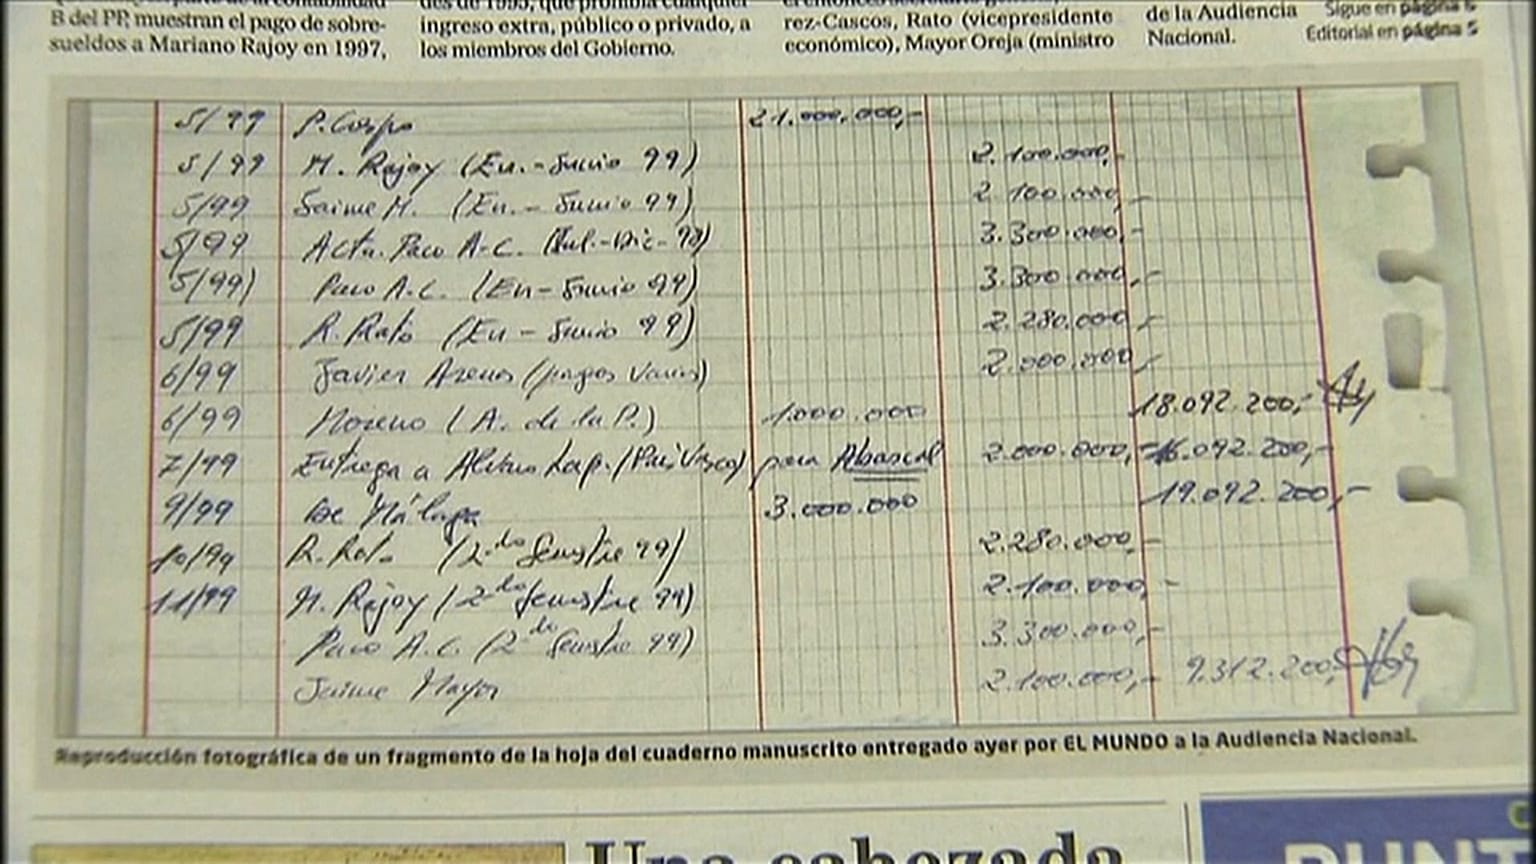 B del PP, muestran el pago de sobre-
sueldos a Mariano Rajoy en 1997,
des de 1995, que prohibía cualquier
ingreso extra, público o privado, a
los miembros del Gobierno.
rez-Cascos, Rato (vicepresidente
económico), Mayor Oreja (ministro
de la Audiencia
Nacional.
Sigue en página 6
Editorial en página 5
5/99 P. Corpo 21.000.000,-
5/99 M. Rajoy (En.-Junio 99) 2.100.000,-
5/99 Jaime M. (En.- Junio 99) 2.100.000,-
5/99 Acta. Paco A-C. (Jul.-Dic- 98) 3.300.000,-
5/99) Paco A.C. (En- Junio 99) 3.300.000,-
5/99 R. Rato (En - Junio 99) 2.280.000,-
6/99 Javier Arenas (pagos varios) 2.000.000,-
6/99 Moreno (A. de la P.) 1.000.000 18.092.200,-
7/99 Entrega a Alvaro Lap. (País Vasco) para Abascal 2.000.000,- 16.092.200,-
9/99 De Málaga 3.000.000 19.092.200,-
10/99 R. Rato (2do Semestre 99) 2.280.000,-
11/99 M. Rajoy (2do Semestre 99) 2.100.000,-
Paco A.C. (2do Semestre 99) 3.300.000,-
Jaime Mayor 2.100.000,- 9.312.200,-
Reproducción fotográfica de un fragmento de la hoja del cuaderno manuscrito entregado ayer por EL MUNDO a la Audiencia Nacional.
Una cabezada